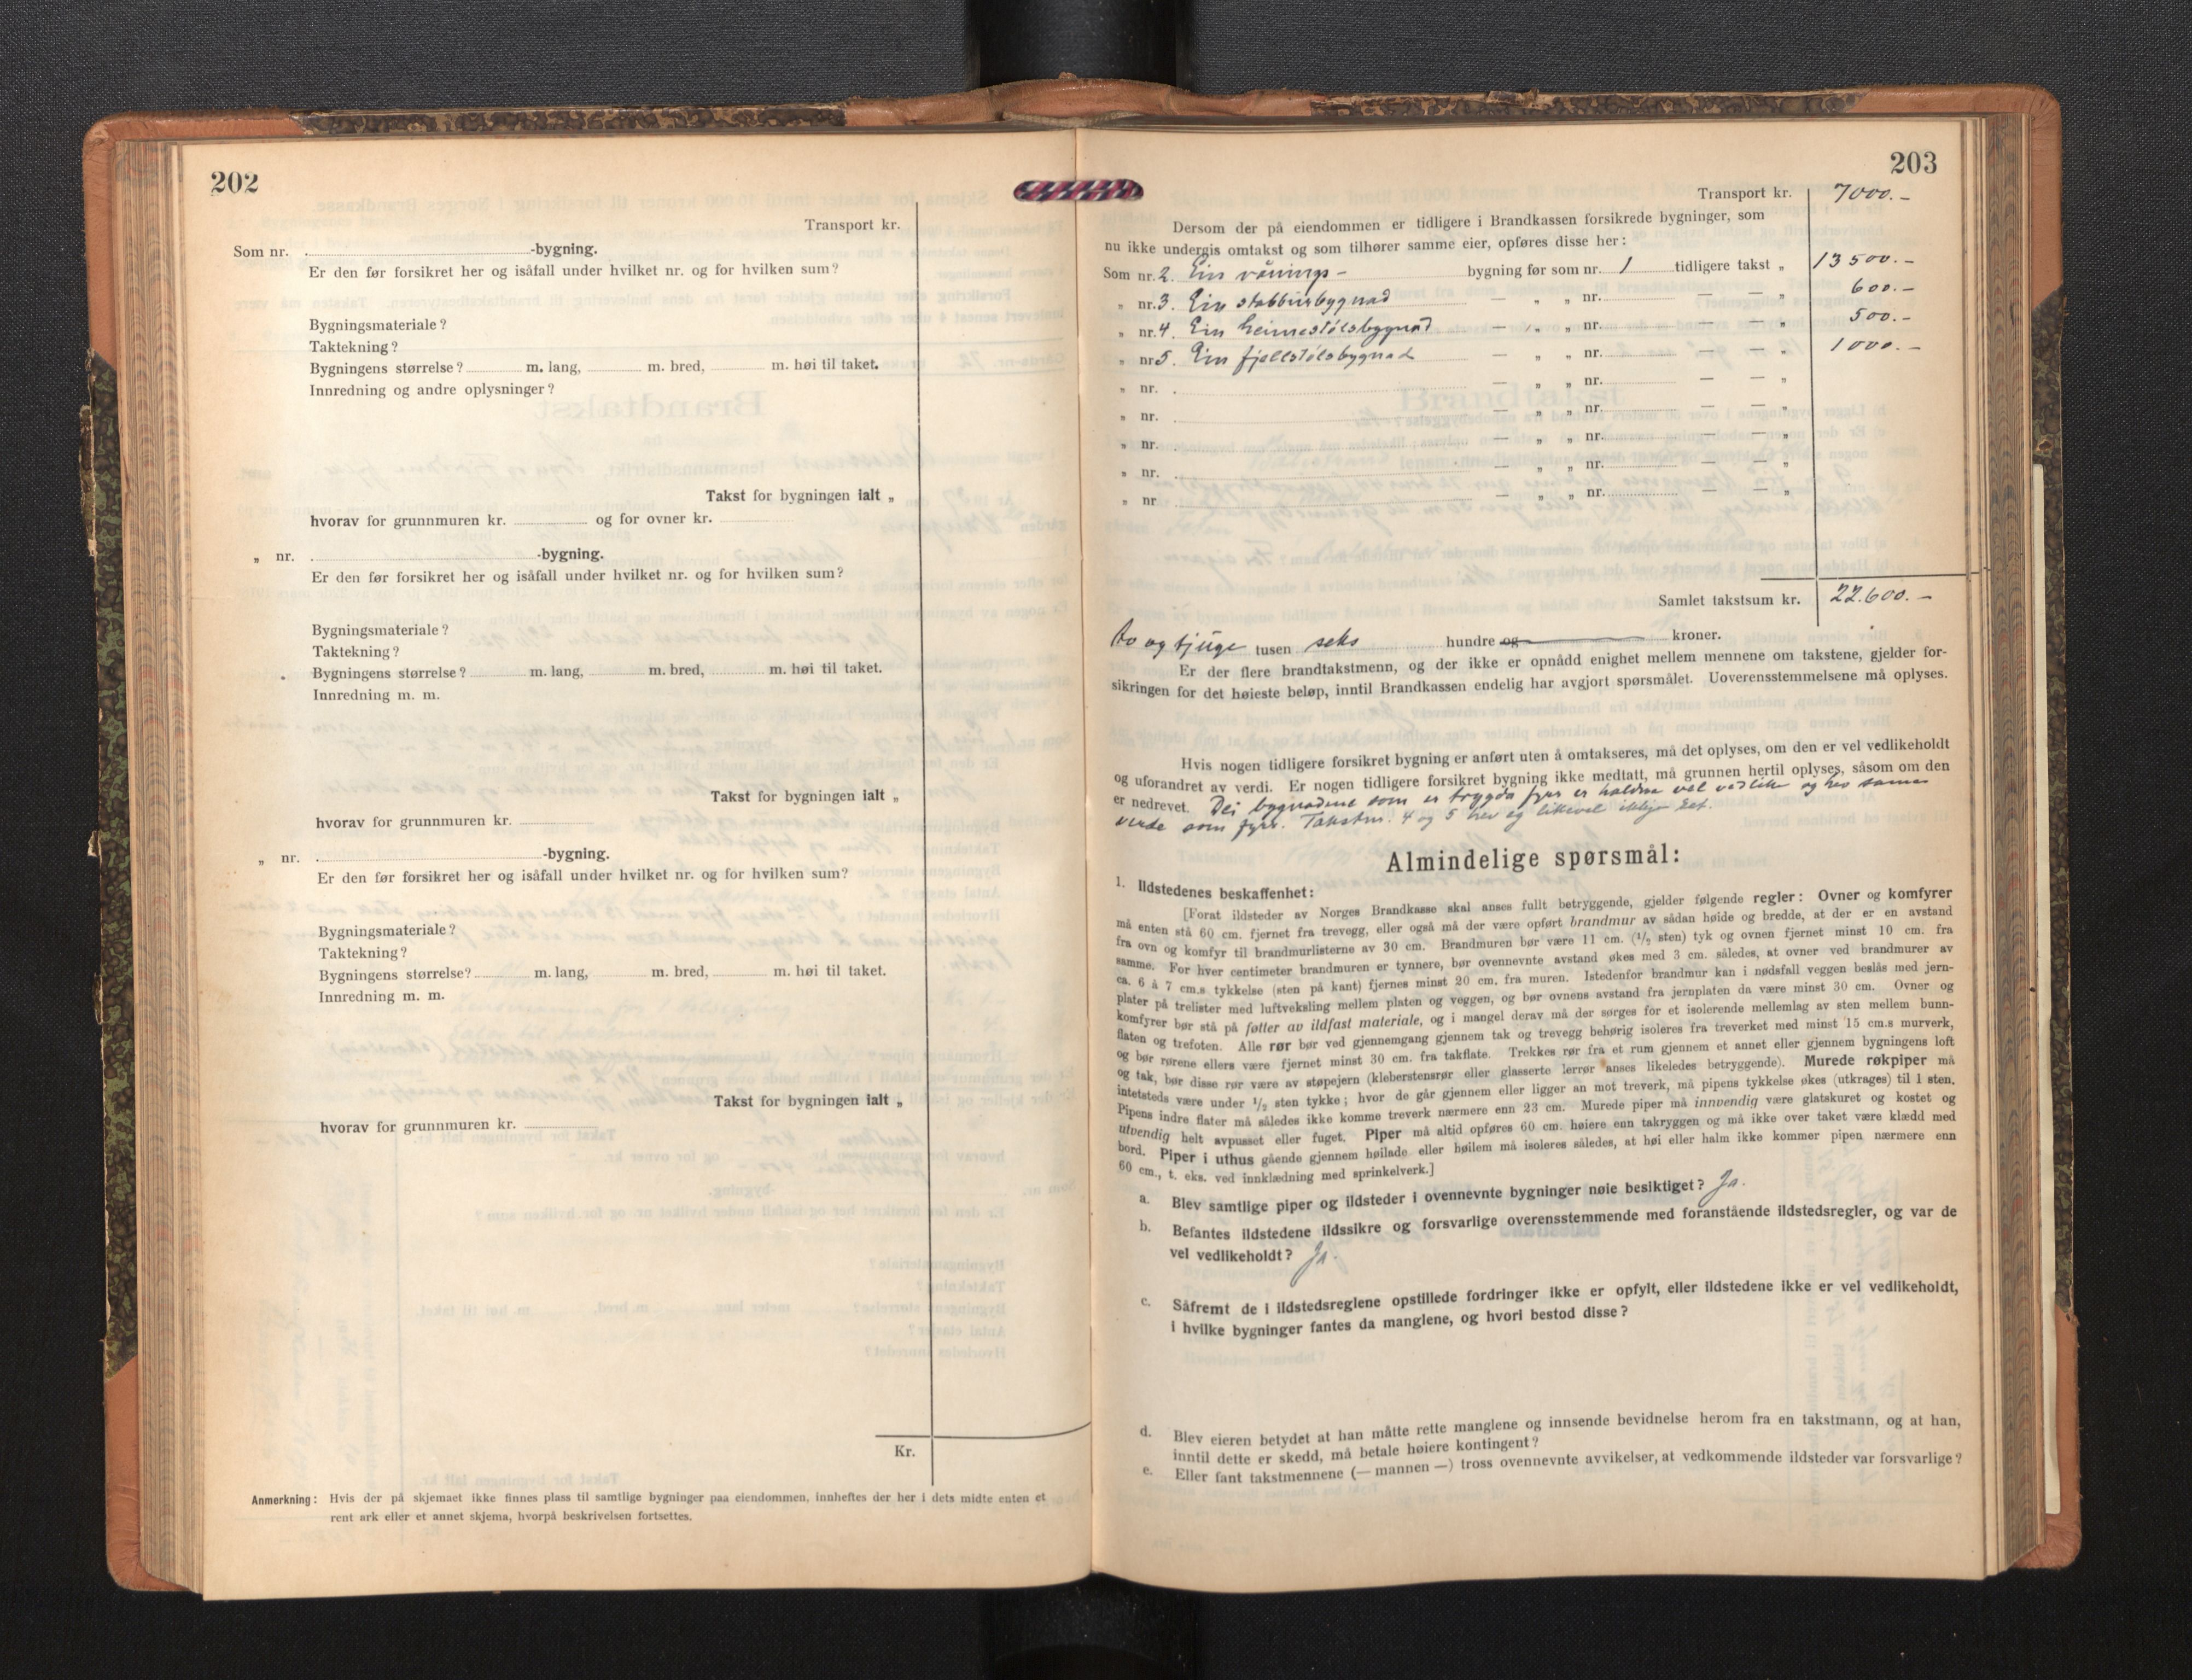 202
Transport kr.
Som nr. -bygning.
Er den før forsikret her og isåfall under hvilket nr. og for hvilken sum?
Bygningsmateriale?
Taktekning?
Bygningens størrelse? m. lang, m. bred, m. høi til taket.
Innredning og andre oplysninger?
Takst for bygningen ialt „
hvorav for grunnmuren kr. og for ovner kr.
„ nr. -bygning.
Er den før forsikret her og isåfall under hvilket nr. og for hvilken sum?
Bygningsmateriale?
Taktekning?
Bygningens størrelse? m. lang, m. bred, m. høi til taket.
Innredning m. m.
Takst for bygningen ialt „
hvorav for grunnmuren kr.
„ nr. -bygning.
Er den før forsikret her og isåfall under hvilket nr. og for hvilken sum?
Bygningsmateriale?
Taktekning?
Bygningens størrelse? m. lang, m. bred, m. høi til taket.
Innredning m. m.
Takst for bygningen ialt „
hvorav for grunnmuren kr.
Kr.
Anmerkning: Hvis der på skjemaet ikke finnes plass til samtlige bygninger paa eiendommen, innheftes der her i dets midte enten et
rent ark eller et annet skjema, hvorpå beskrivelsen fortsettes.
203
Transport kr. 7000.-
Dersom der på eiendommen er tidligere i Brandkassen forsikrede bygninger, som
nu ikke undergis omtakst og som tilhører samme eier, opføres disse her:
Som nr. 2. Ein vånings- bygning før som nr. 1 tidligere takst „ 13500.-
„ nr. 3. Ein stabbursbygnad — „ „ nr. — — „ 600.-
„ nr. 4. Ein heimestølsbygnad — „ „ nr. — — „ 500.-
„ nr. 5. Ein fjellstølsbygnad — „ „ nr. — — „ 1000.-
„ nr. — „ „ nr. — — „
„ nr. — „ „ nr. — — „
„ nr. — „ „ nr. — — „
„ nr. — „ „ nr. — — „
„ nr — „ „ nr. — — „
Samlet takstsum kr. 22.600.-
To og tjuge tusen seks hundre og kroner.
Er der flere brandtakstmenn, og der ikke er opnådd enighet mellem mennene om takstene, gjelder for-
sikringen for det høieste beløp, inntil Brandkassen endelig har avgjort spørsmålet. Uoverensstemmelsene må oplyses.
Hvis nogen tidligere forsikret bygning er anført uten å omtakseres, må det oplyses, om den er vel vedlikeholdt
og uforandret av verdi. Er nogen tidligere forsikret bygning ikke medtatt, må grunnen hertil oplyses, såsom om den
er nedrevet. Dei bygnadene som er trygda fyrr er haldne vel vedlike og hev same
verde som fyrr. Takstnr. 4 og 5 hev eg likevel ikkje set.
Almindelige spørsmål:
1. Ildstedenes beskaffenhet:
[Forat ildsteder av Norges Brandkasse skal anses fullt betryggende, gjelder følgende regler: Ovner og komfyrer
må enten stå 60 cm. fjernet fra trevegg, eller også må der være opført brandmur av sådan høide og bredde, at der er en avstand
fra ovn og komfyr til brandmurlisterne av 30 cm. Brandmuren bør være 11 cm. (1/2 sten) tyk og ovnen fjernet minst 10 cm. fra
samme. For hver centimeter brandmuren er tynnere, bør ovennevnte avstand økes med 3 cm. således, at ovner ved brandmurer av
ca. 6 à 7 cm.s tykkelse (sten på kant) fjernes minst 20 cm. fra muren. Istedenfor brandmur kan i nødsfall veggen beslås med jern-
plater på trelister med luftveksling mellem platen og veggen, og bør ovnens avstand fra jernplaten da være minst 30 cm. Ovner og
komfyrer bør stå på føtter av ildfast materiale, og i mangel derav må der sørges for et isolerende mellemlag av sten mellem bunn-
flaten og trefoten. Alle rør bør ved gjennemgang gjennem tak og trevegg behørig isoleres fra treverket med minst 15 cm.s murverk,
og bør rørene ellers være fjernet minst 30 cm. fra takflate. Trekkes rør fra et rum gjennem et annet eller gjennem bygningens loft
og tak, bør disse rør være av støpejern (kleberstensrør eller glasserte lerrør anses likeledes betryggende). Murede røkpiper må
intetsteds være under 1/2 sten tykke; hvor de går gjennem eller ligger an mot treverk, må pipens tykkelse økes (utkrages) til 1 sten.
Pipens indre flater må således ikke komme treverk nærmere enn 23 cm. Murede piper må innvendig være glatskuret og kostet og
utvendig helt avpusset eller fuget. Piper må altid opføres 60 cm. høiere enn takryggen og må ikke over taket være klædd med
bord. Piper i uthus gående gjennem høilade eller høilem må isoleres således, at høi eller halm ikke kommer pipen nærmere enn
60 cm., t. eks. ved innklædning med sprinkelverk.]
a. Blev samtlige piper og ildsteder i ovennevnte bygninger nøie besiktiget? Ja.
b. Befantes ildstedene ildssikre og forsvarlige overensstemmende med foranstående ildstedsregler, og var de
vel vedlikeholdt? Ja.
c. Såfremt de i ildstedsreglene opstillede fordringer ikke er opfylt, eller ildstedene ikke er vel vedlikeholdt,
i hvilke bygninger fantes da manglene, og hvori bestod disse?
d. Blev eieren betydet at han måtte rette manglene og innsende bevidnelse herom fra en takstmann, og at han,
inntil dette er skedd, må betale høiere kontingent?
e. Eller fant takstmennene (— mannen —) tross ovennevnte avvikelser, at vedkommende ildsteder var forsvarlige?